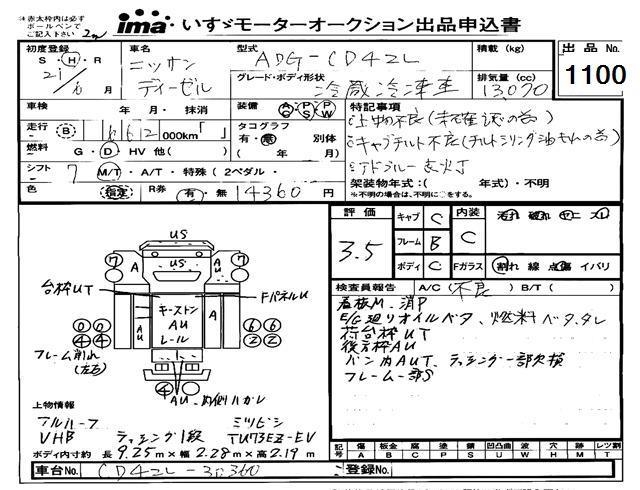 ※赤太枠内は必ず
ボールペンで
ご記入下さい
ima いすゞモーターオークション出品申込書
初度登録 S・H・R 21/6月
車名 ニッサン ディーゼル
型式 ADG-CD42L
積載 (kg)
出品 No. 1100
グレード・ボディ形状 冷蔵冷凍車
排気量 (cc) 13,070
車検 年 月・抹消
装備 AC PS PW
特記事項
走行 B 000km「 」
タコグラフ 有・無 別体 ( 年 月)
燃料 G・D・HV 他( )
シフト 7 M/T・A/T・特殊(2ペダル・ )
架装物年式:( 年式)・不明
※不明の場合は、不明に○をする。
色 指定 R券 有・無 14360 円
評価 3.5
キャブ C
フレーム B
ボディ C
内装 C
汚れ 破れ ヤニ スレ
Fガラス 割れ 線 点傷 イバリ
検査員報告 A/C(不良) B/T( )
看板M、消P
E/G廻りオイルベタ、燃料ベタ、タレ
荷台枠UT
後方枠AU
バン内AUT、ラッシング一部欠損
フレーム一部S
US
US
AU
A
A
7
7
台枠UT
FパネルU
キーストン
AU
レール
AU
A
A
0 0
4 4
6 6
2 2
フレーム削れ
(左右)
4
AU、内側ハガレ
上物情報
アルハーフ ミツビシ
VHB ラッシング1段 TU73EZ-EV
ボディ内寸約 長 9.25m×幅 2.28m×高 2.19m
記号 傷 A 板金 B 腐 C 塗 P 錆 S 凹凸曲 U 波 W 穴 H 跡 M レツ割 T
車台No. CD42L-30360
登録No.